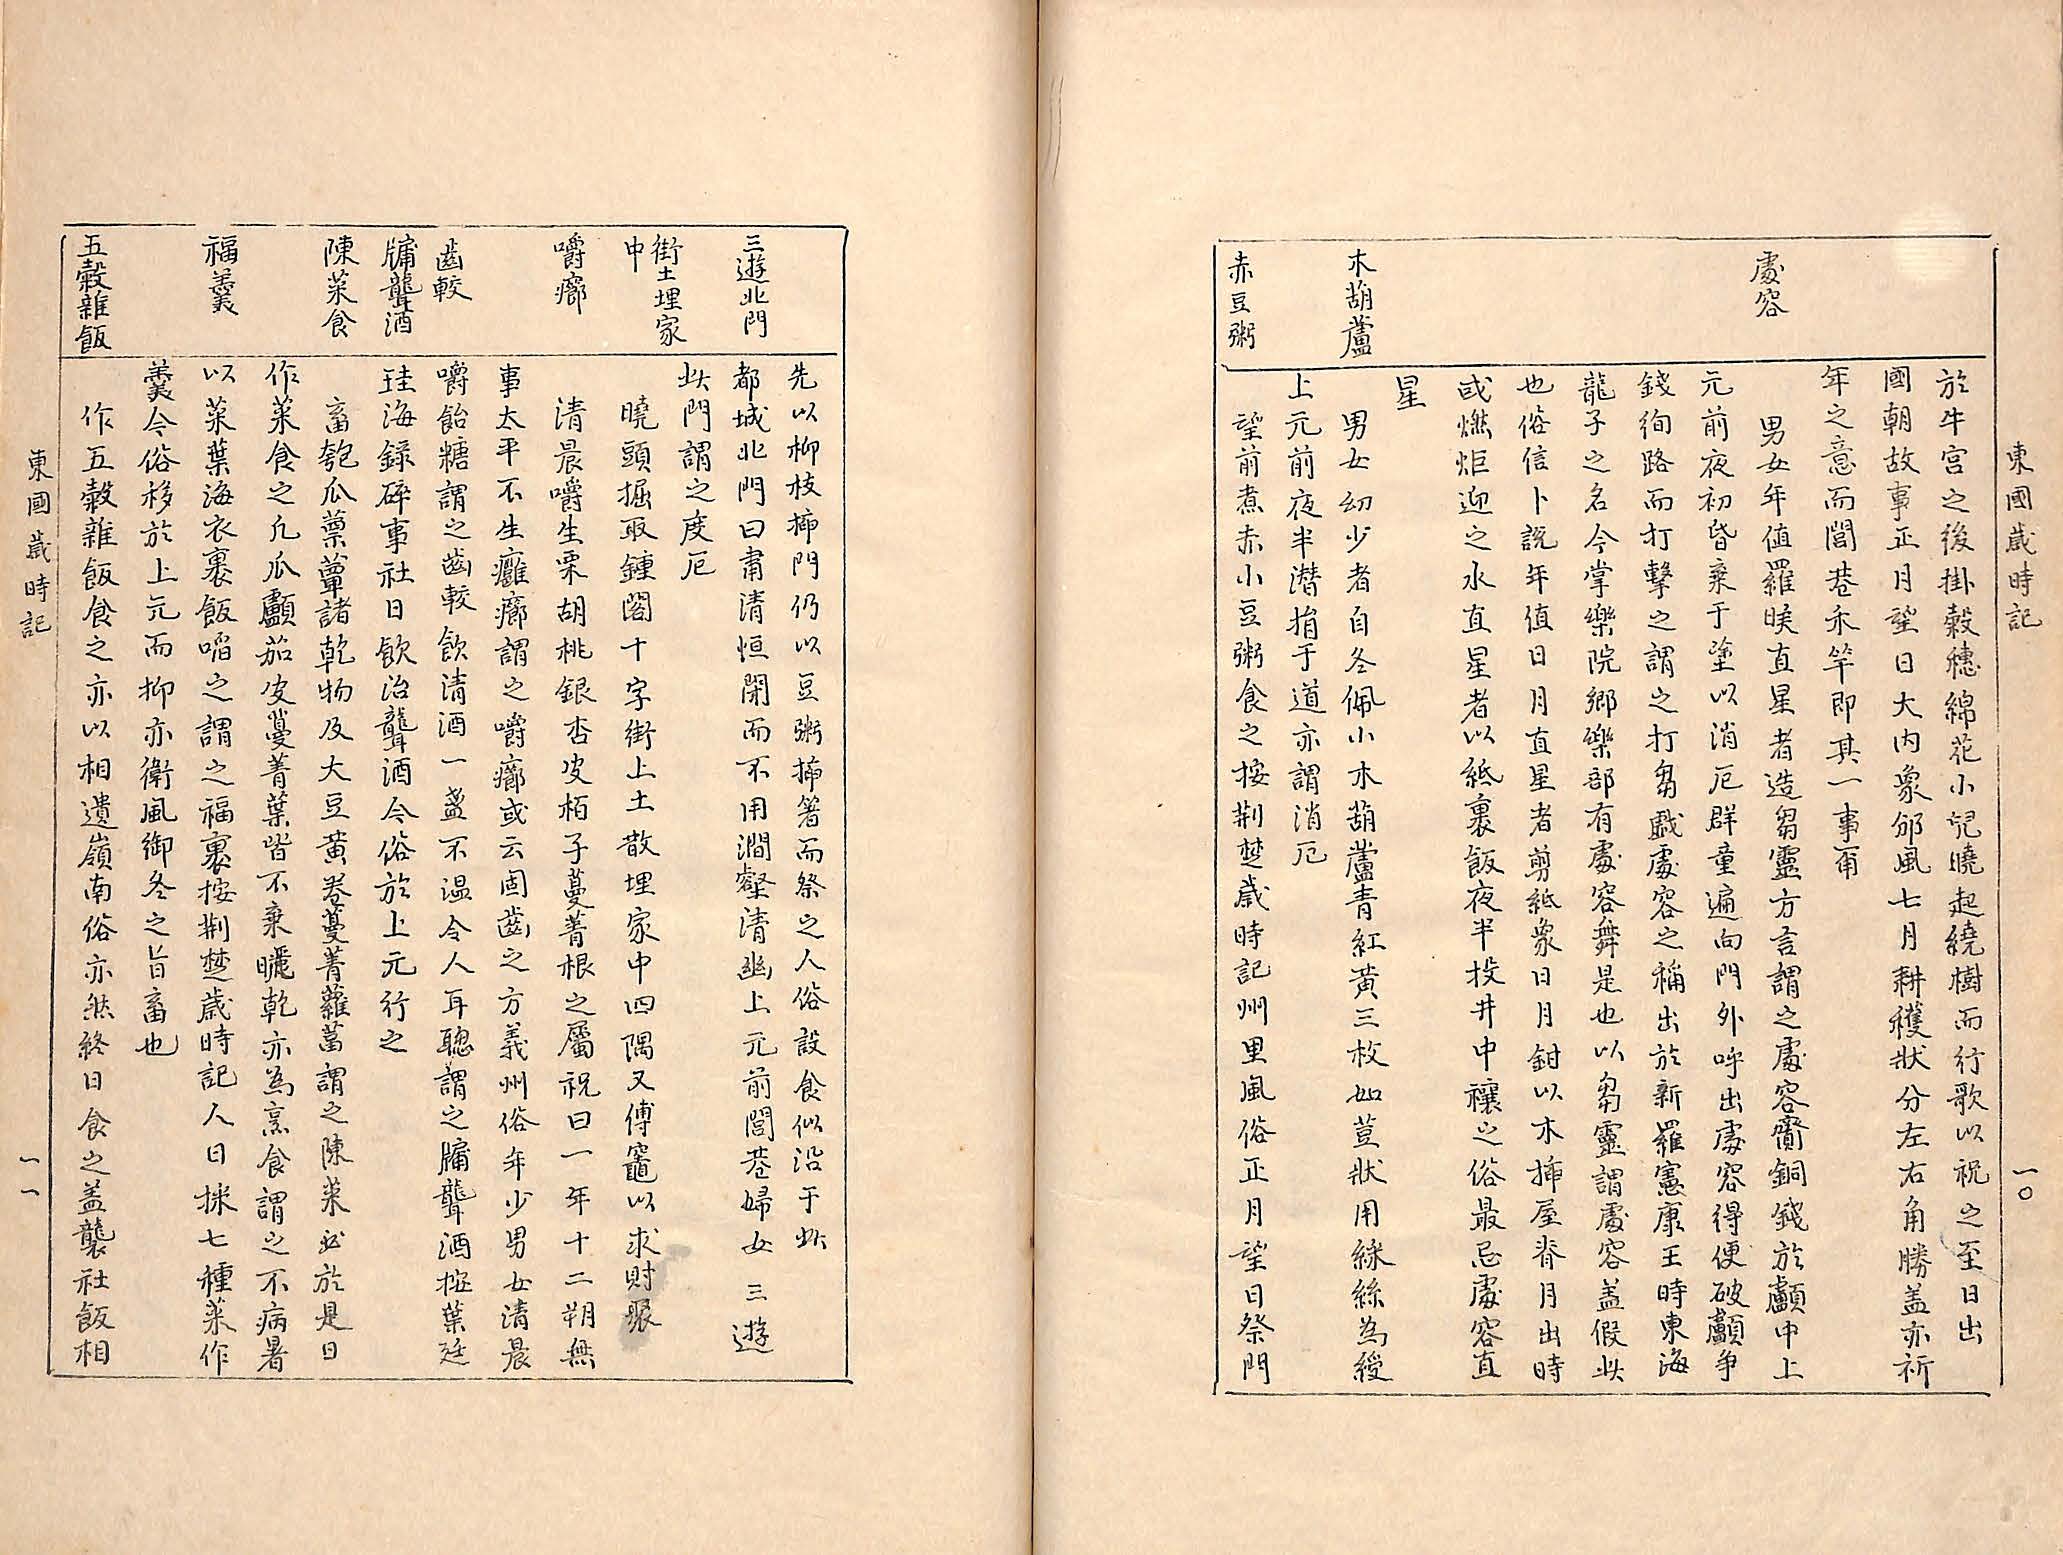 東國歲時記
一〇
處容
木葫蘆
赤豆粥
於牛宮之後掛穀穗綿花小兒曉起繞樹而行歌以祝之至日出
國朝故事正月望日大内象豳風七月耕穫狀分左右角勝盖亦祈
年之意而閭巷禾竿即其一事甭
男女年值羅睺直星者造芻靈方言謂之處容齎銅錢於顱中上
元前夜初昏棄于塗以消厄群童遍向門外呼出處容得便破顱爭
錢徇路而打擊之謂之打芻戱處容之稱出於新羅憲康王時東海
龍子之名今掌樂院鄉樂部有處容舞是也以芻靈謂處容盖假此
也俗信卜說年值日月直星者剪紙象日月鉗以木揷屋脊月出時
或燃炬迎之水直星者以紙裹飯夜半投井中禳之俗最忌處容直
星
男女幼少者自冬佩小木葫蘆青紅黃三枚如荳狀用綵絲為綬
上元前夜半潛捐于道亦謂消厄
望前煮赤小豆粥食之按荆楚歲時記州里風俗正月望日祭門
三遊北門
街土埋家中
嚼癤
齒較
牖聾酒
陳菜食
福羹
五穀雜飯
先以柳枝揷門仍以豆粥揷箸而祭之人俗設食似沿于此
都城北門曰肅清恒閉而不用澗壑清幽上元前閭巷婦女三遊
此門謂之度厄
曉頭掘取鍾閣十字街上土散埋家中四隅又傅竈以求財聚
清晨嚼生栗胡桃銀杏皮栢子蔓菁根之屬祝曰一年十二朔無
事太平不生癰癤謂之嚼癤或云固齒之方義州俗年少男女清晨
嚼飴糖謂之齒較飲清酒一盞不温令人耳聰謂之牖聾酒按葉廷
珪海錄碎事社日飲治聾酒今俗於上元行之
畜匏瓜蔈蕈諸乾物及大豆黃卷蔓菁蘿葍謂之陳菜必於是日
作菜食之凡瓜顱茄皮蔓菁葉皆不棄曬乾亦為烹食謂之不病暑
以菜葉海衣裹飯啗之謂之福裹按荆楚歲時記人日採七種菜作
羹今俗移於上元而抑亦衛風御冬之旨畜也
作五穀雜飯食之亦以相遺嶺南俗亦然終日食之盖襲社飯相
東國歲時記
一一